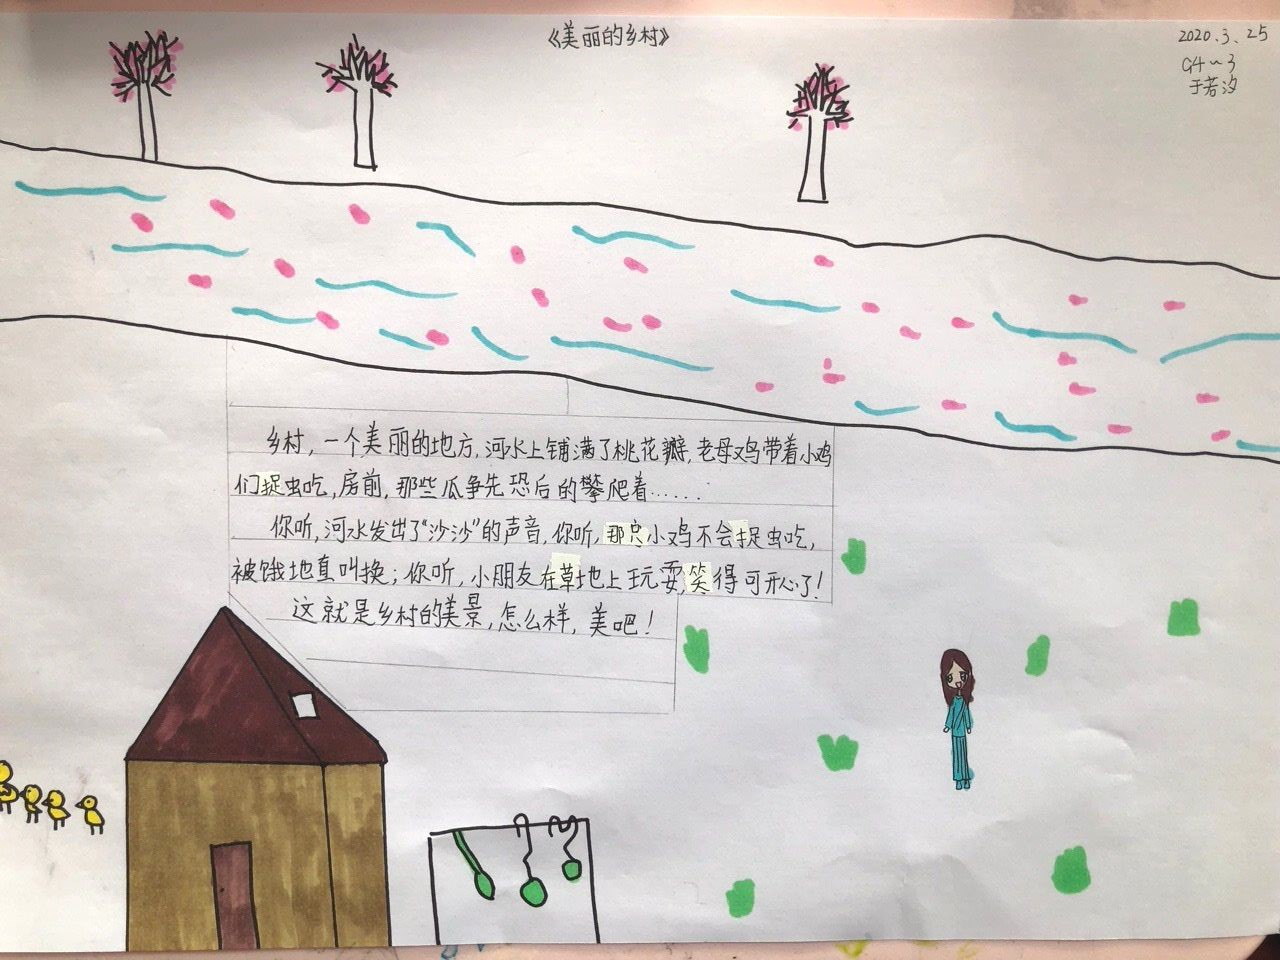 《美丽的乡村》
2020.3.25
G4~3
于若汐
乡村，一个美丽的地方，河水上铺满了桃花瓣，老母鸡带着小鸡
们捉虫吃，房前，那些瓜争先恐后的攀爬着……
你听，河水发出了“沙沙”的声音，你听，那只小鸡不会捉虫吃，
被饿地直叫换；你听，小朋友在草地上玩耍，笑得可开心了！
这就是乡村的美景，怎么样，美吧！